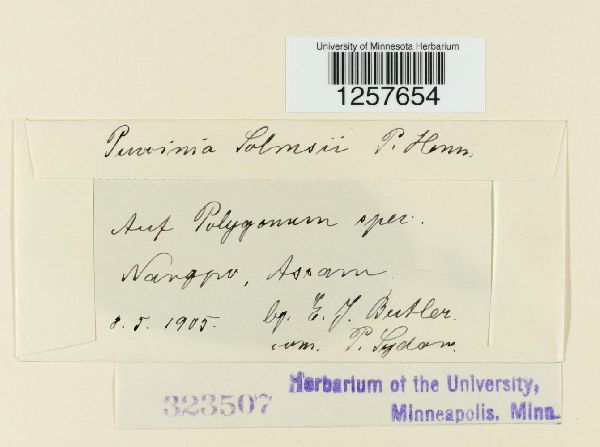 University of Minnesota Herbarium
1257654
Puccinia Solmsii P. Henn.
Auf Polygonum spec.
Nangpo, Assam.
8. 5. 1905. lg. E. J. Butler.
com. P. Sydow.
323507
Herbarium of the University,
Minneapolis, Minn.